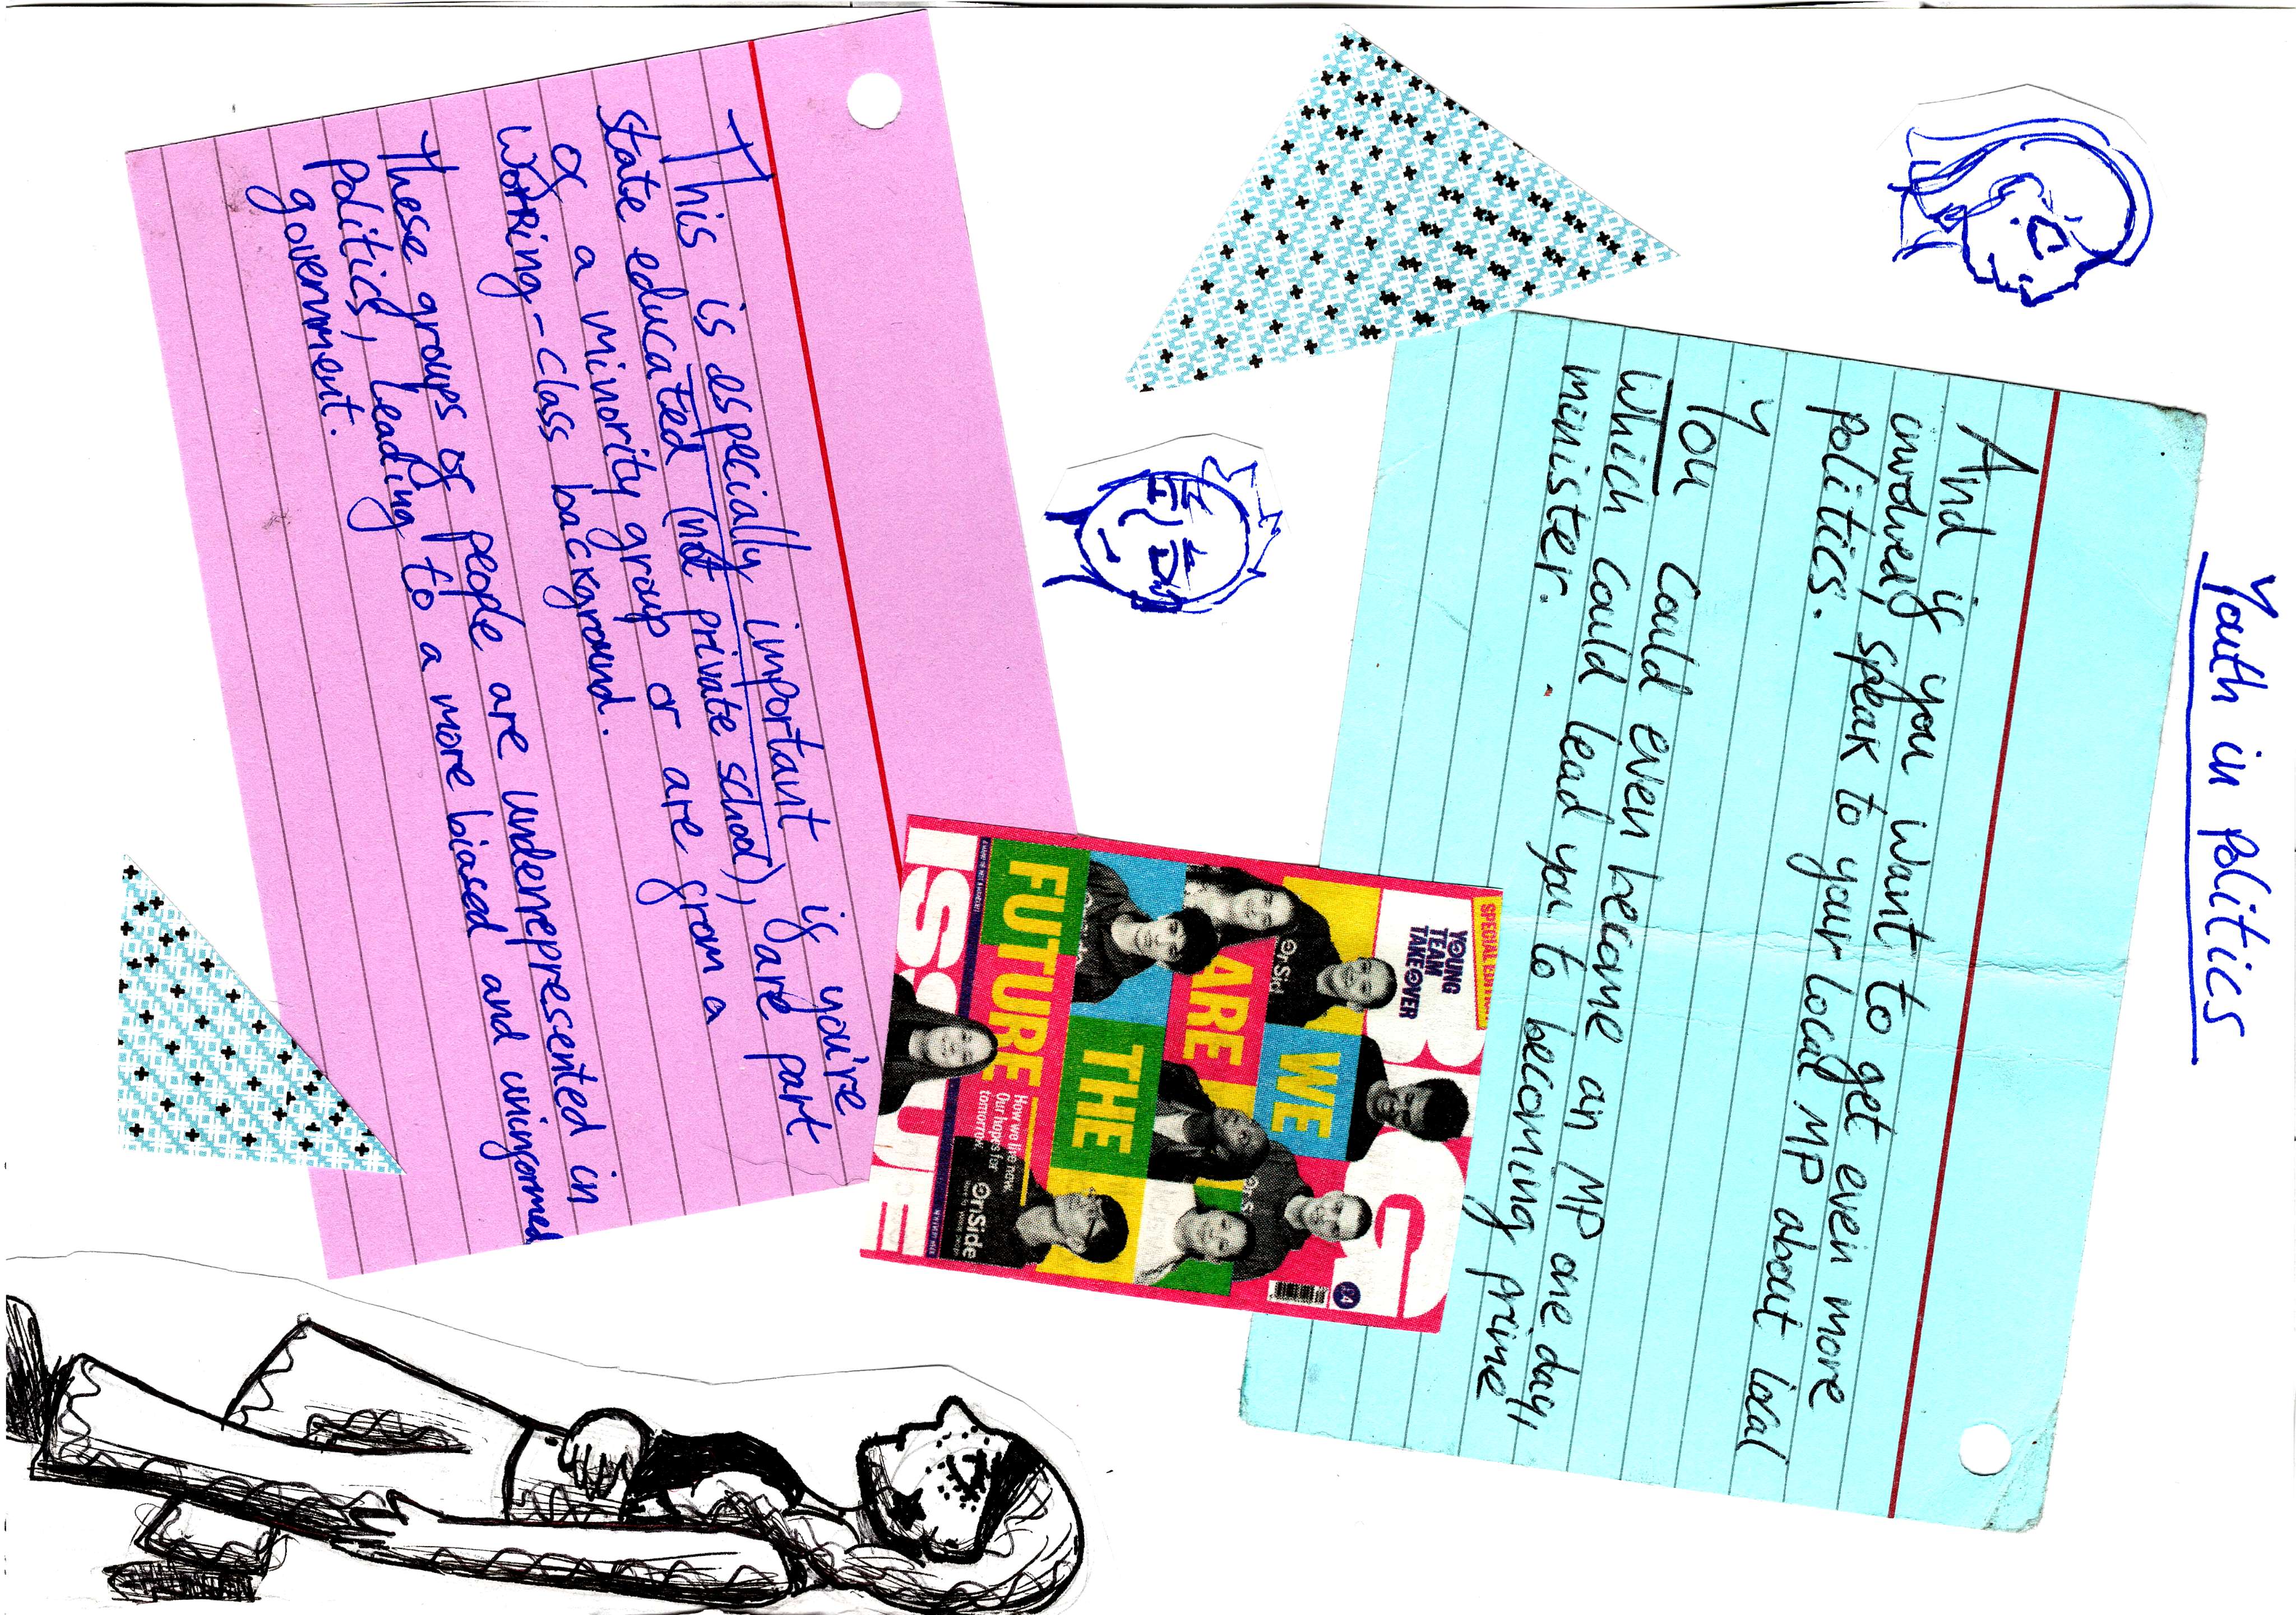 Youth in politics
And if you want to get even more
involved, speak to your local MP about local
politics.
You could even become an MP one day,
which could lead you to becoming prime
minister.
SPECIAL EDITION
YOUNG
TEAM
TAKEOVER
BIG
ISSUE
WE
ARE
THE
FUTURE
How we live now.
Our hopes for
tomorrow
OnSide
£4
This is especially important if you're
state educated (not private school), are part
of a minority group or are from a
working-class background.
These groups of people are underrepresented in
politics, leading to a more biased and uninformed
government.